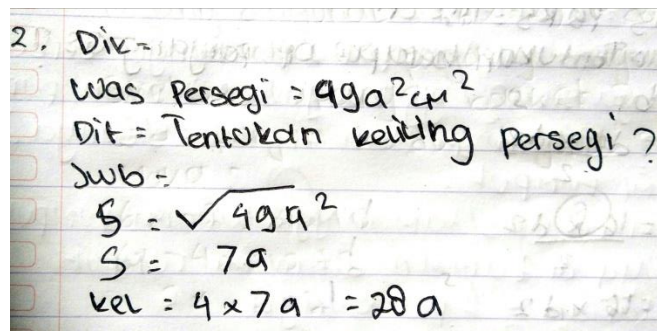 2. Dik =
Luas Persegi = 49a² cm²
Dit = Tentukan keliling persegi?
Jwb =
S = √49a²
S = 7a
kel = 4 x 7a = 28a